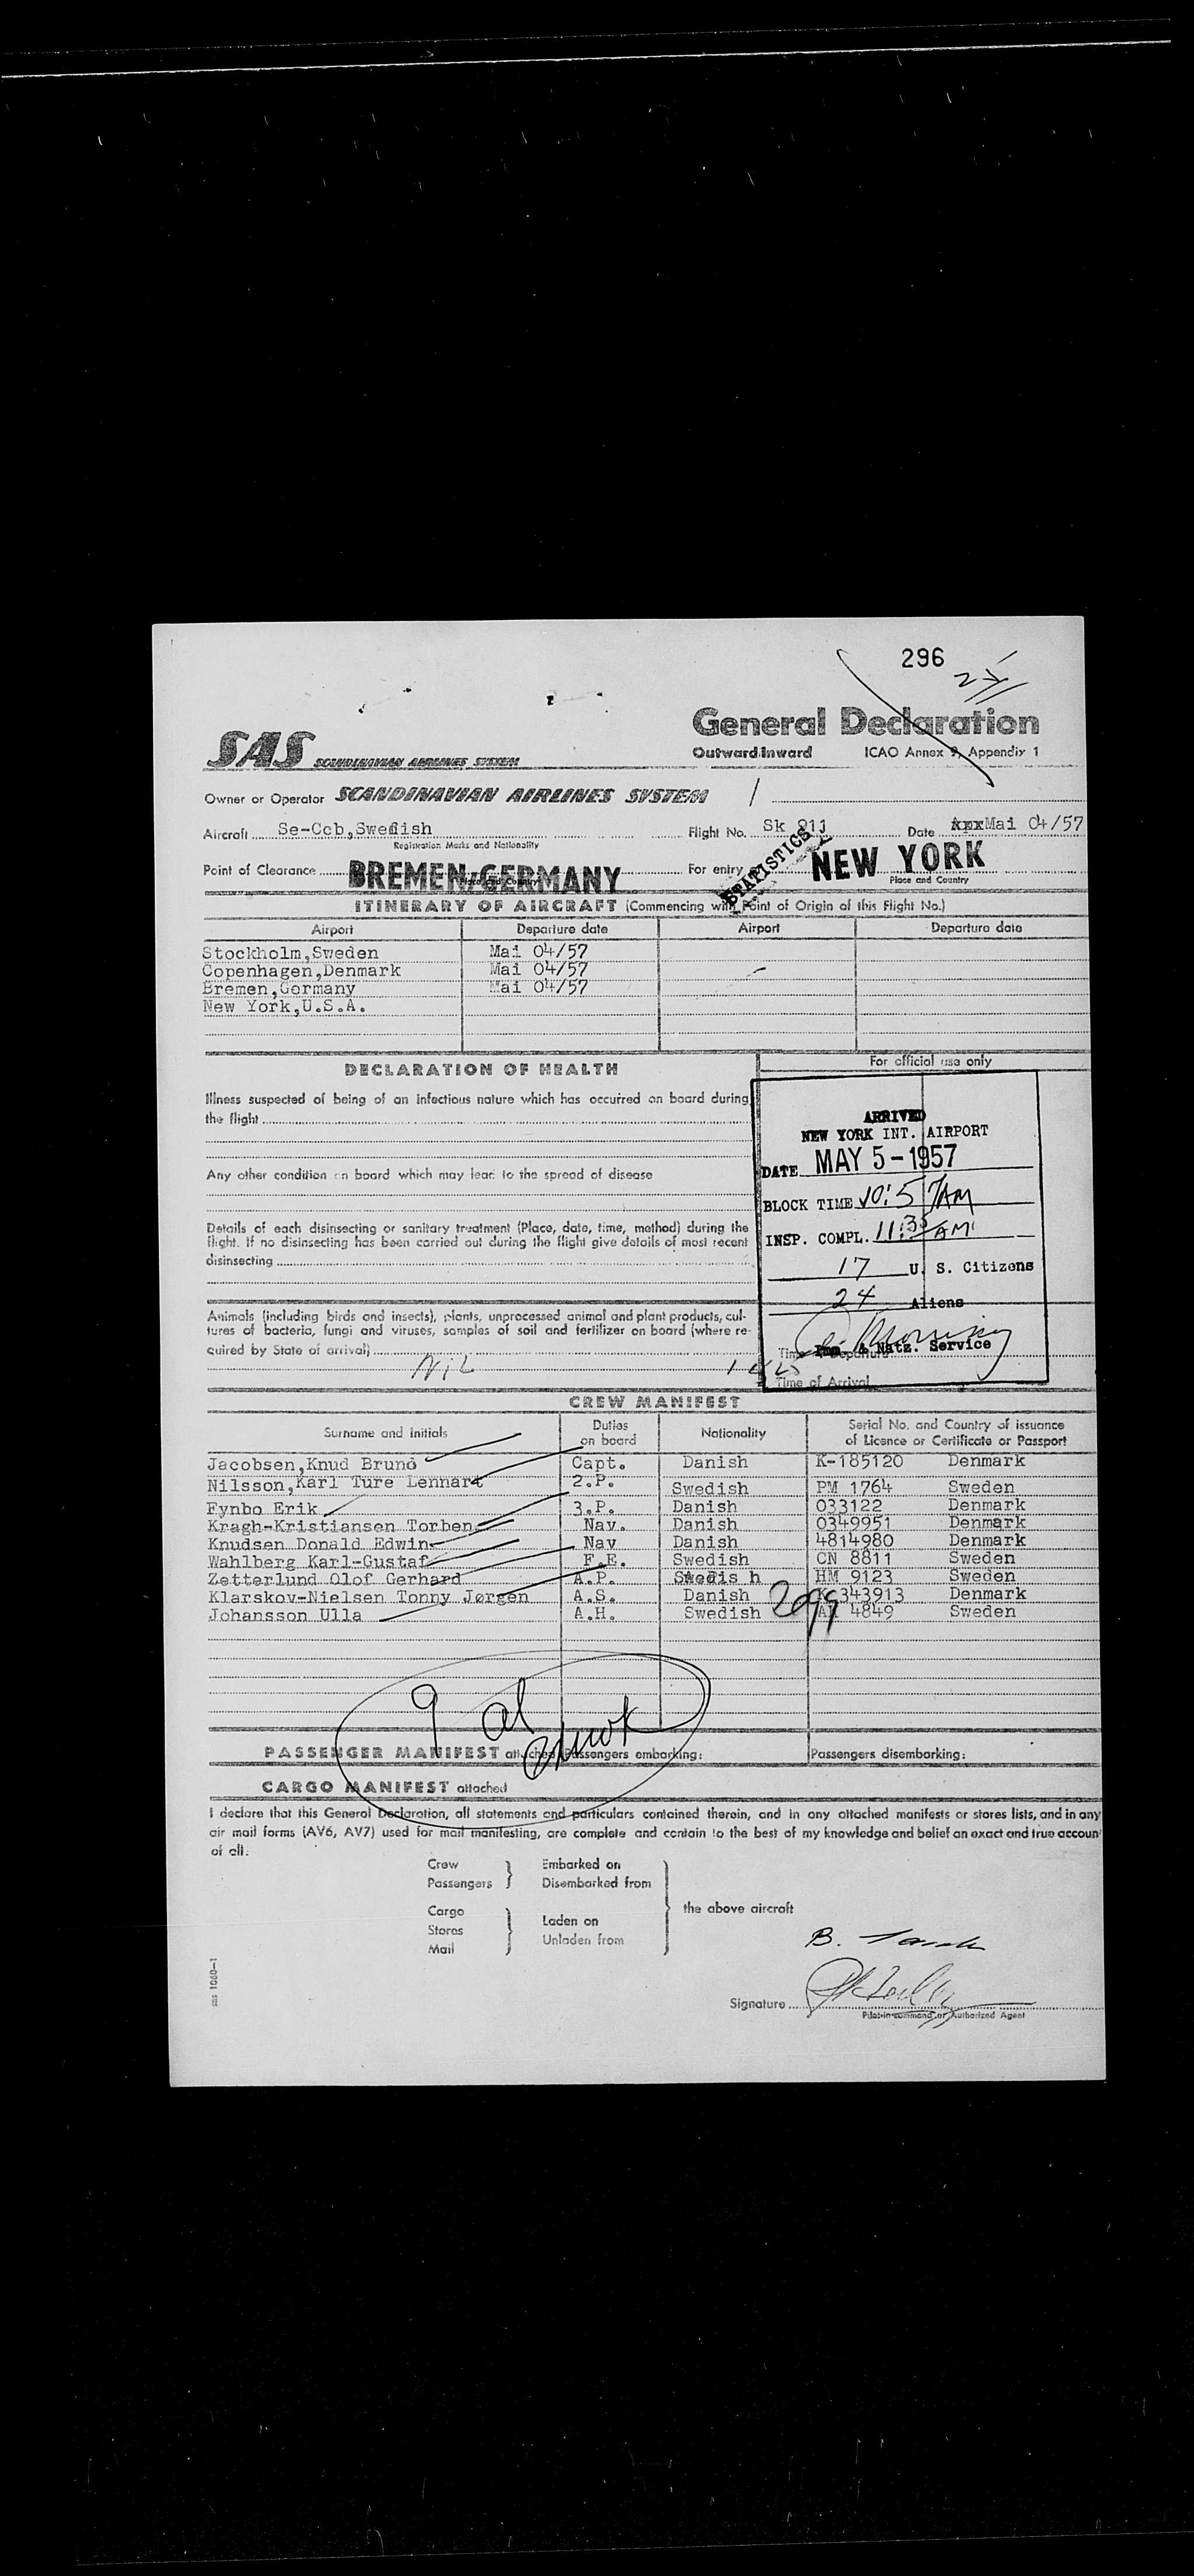 296
SAS SCANDINAVIAN AIRLINES SYSTEM
General Declaration
Outward/Inward ICAO Annex 9, Appendix 1
Owner or Operator SCANDINAVIAN AIRLINES SYSTEM
Aircraft Se-Ccb,Swedish Flight No. Sk 911 Date Mai 04/57
Registration Marks and Nationality
Point of Clearance BREMEN, GERMANY For entry NEW YORK
Place and Country Place and Country
STATISTICS
ITINERARY OF AIRCRAFT (Commencing with Point of Origin of this Flight No.)
Airport Departure date Airport Departure date
Stockholm,Sweden Mai 04/57
Copenhagen,Denmark Mai 04/57
Bremen,Germany Mai 04/57
New York,U.S.A.
DECLARATION OF HEALTH
For official use only
Illness suspected of being of an infectious nature which has occurred on board during
the flight
Any other condition on board which may lead to the spread of disease
Details of each disinsecting or sanitary treatment (Place, date, time, method) during the
flight. If no disinsecting has been carried out during the flight give details of most recent
disinsecting
Animals (including birds and insects), plants, unprocessed animal and plant products, cul-
tures of bacteria, fungi and viruses, samples of soil and fertilizer on board (where re-
quired by State of arrival)
NiL
ARRIVED
NEW YORK INT. AIRPORT
DATE MAY 5-1957
BLOCK TIME 10:57AM
INSP. COMPL. 11:35 AM
17 U. S. Citizens
24 Aliens
Imm. & Natz. Service
Time of Departure
Time of Arrival
CREW MANIFEST
Surname and initials Duties on board Nationality Serial No. and Country of issuance of Licence or Certificate or Passport
Jacobsen,Knud Bruno Capt. Danish K-185120 Denmark
Nilsson,Karl Ture Lennart 2.P. Swedish PM 1764 Sweden
Fynbo Erik 3.P. Danish 033122 Denmark
Kragh-Kristiansen Torben Nav. Danish 0349951 Denmark
Knudsen Donald Edwin Nav Danish 4814980 Denmark
Wahlberg Karl-Gustaf F.E. Swedish CN 8811 Sweden
Zetterlund Olof Gerhard A.P. Swedis h HM 9123 Sweden
Klarskov-Nielsen Tonny Jørgen A.S. Danish K 343913 Denmark
Johansson Ulla A.H. Swedish 4849 Sweden
9 al
PASSENGER MANIFEST attached Passengers embarking: Passengers disembarking:
CARGO MANIFEST attached
I declare that this General Declaration, all statements and particulars contained therein, and in any attached manifests or stores lists, and in any
air mail forms (AV6, AV7) used for mail manifesting, are complete and contain to the best of my knowledge and belief an exact and true accoun
of all:
Crew Embarked on
Passengers Disembarked from
the above aircraft
Cargo
Stores Laden on
Mail Unladen from
B.
Signature
Pilot-in-command or Authorized Agent
sas 1060-1